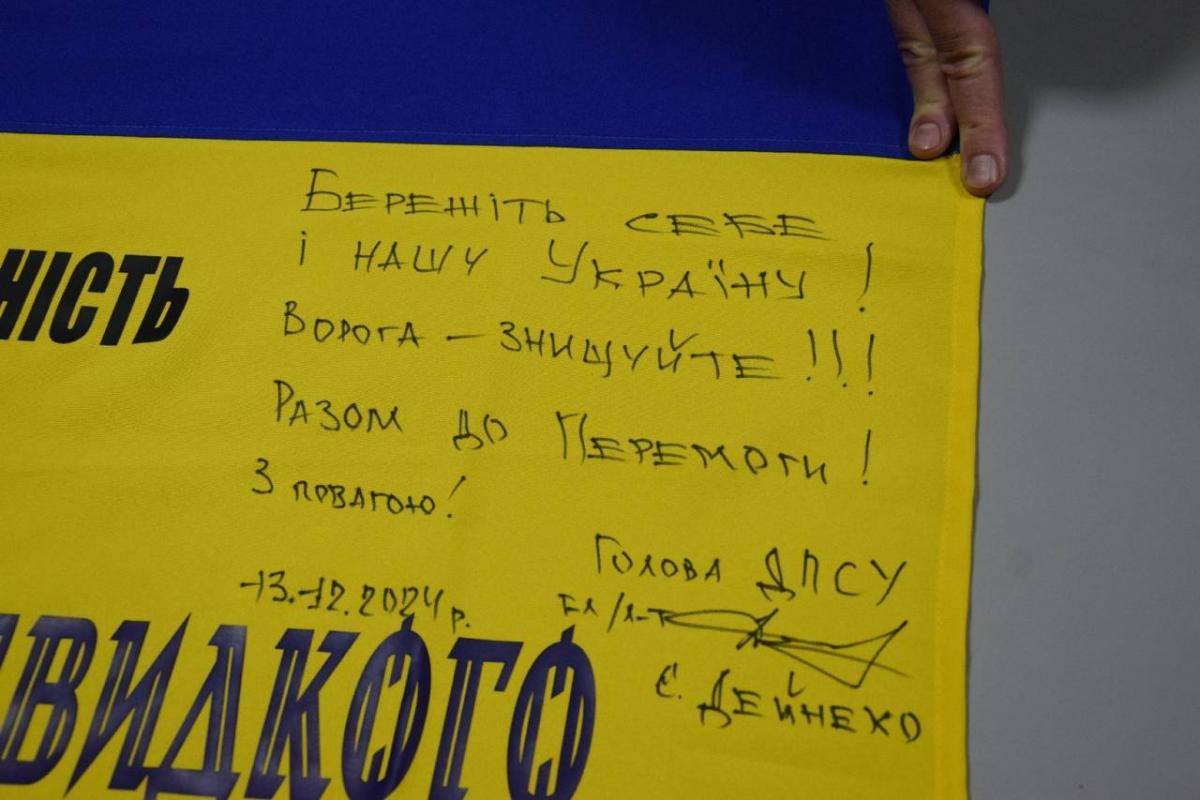 Бережіть себе
і нашу Україну!
НІСТЬ
Ворога – знищуйте!!!
Разом до Перемоги!
З повагою!
Голова ДПСУ
13.12.2024 р.
г-л/л-т
ВИДКОГО
С. Дейнеко